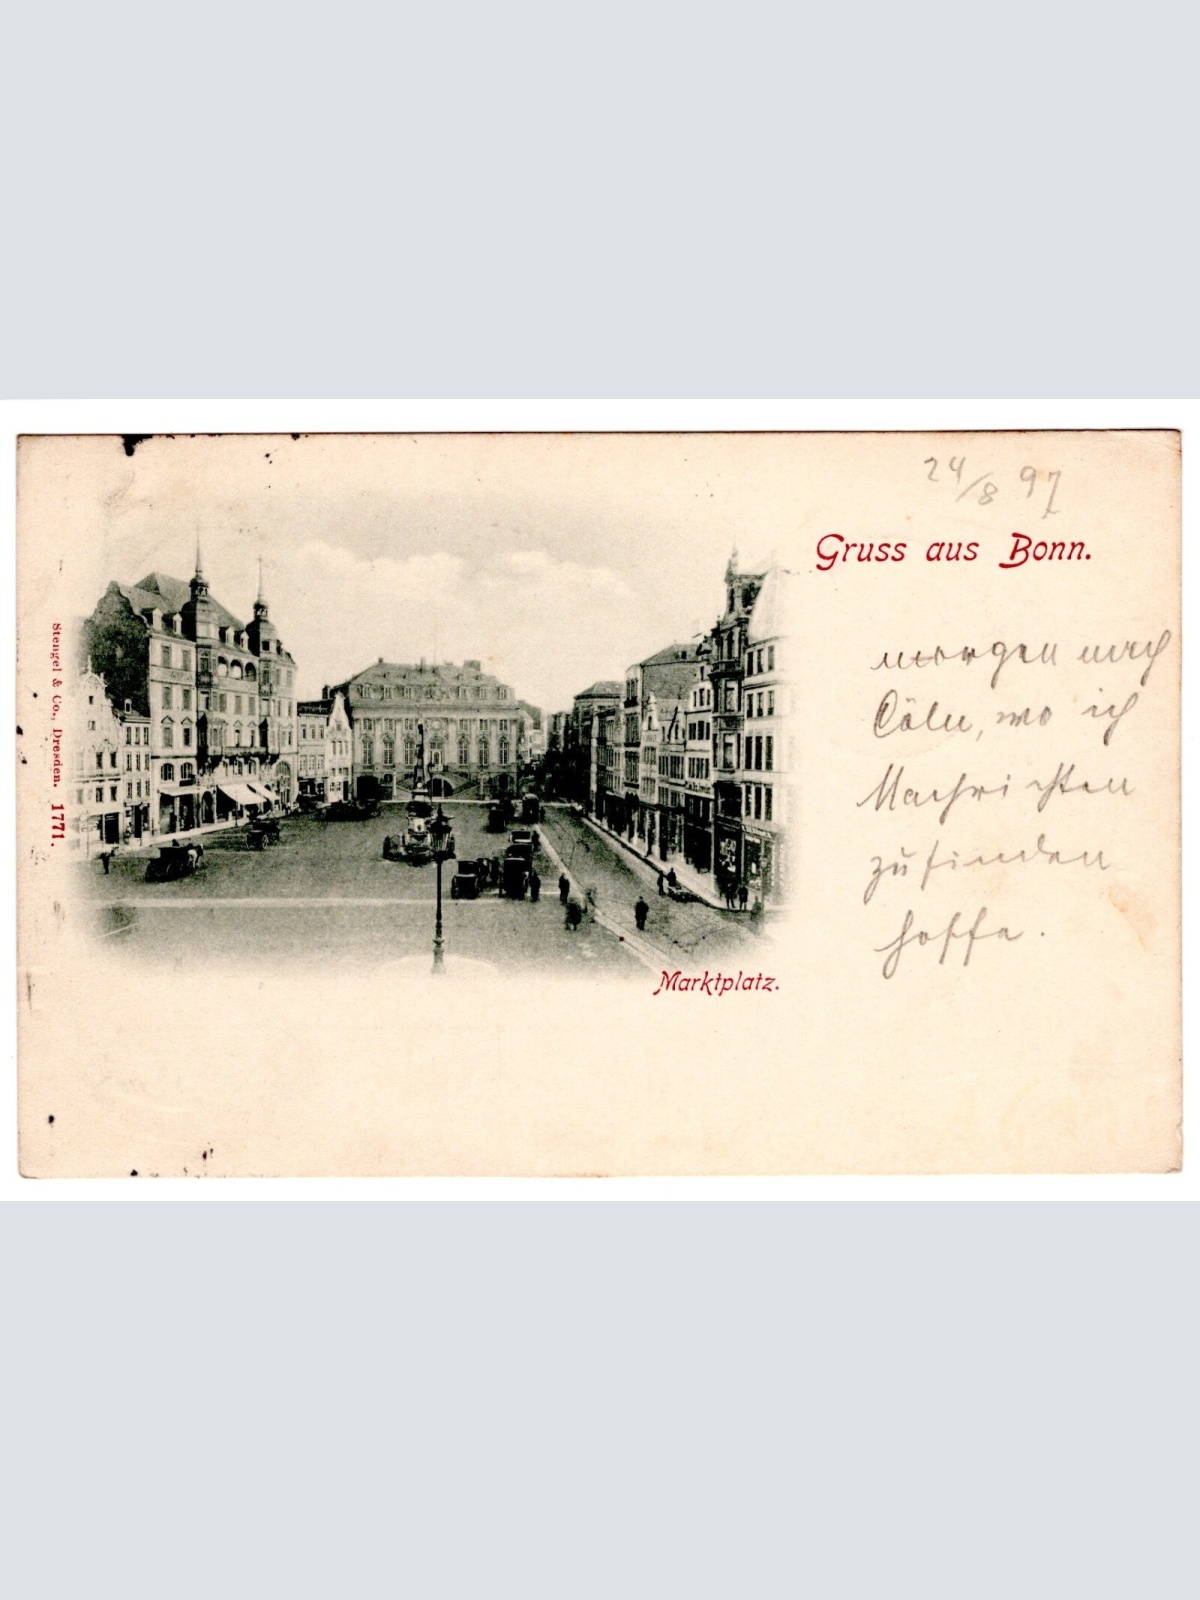 24/8 97
Gruss aus Bonn.
morgen nach
Cöln, wo ich
Nachrichten
zu finden
hoffe.
Marktplatz.
Stengel & Co., Dresden. 1771.